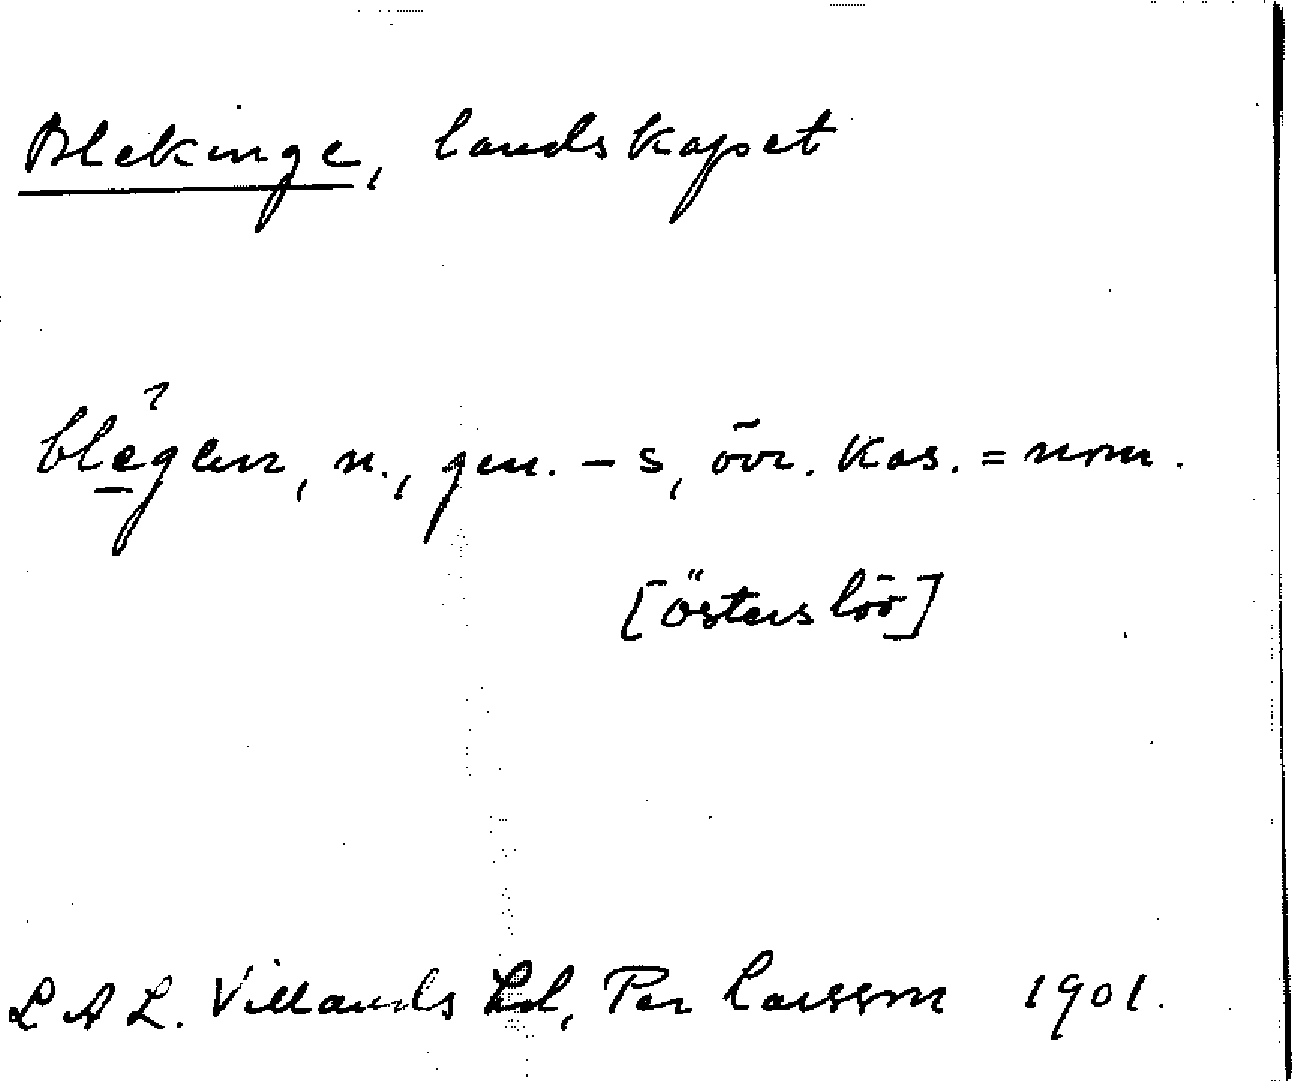 Blekinge, landskapet
blegen, n., gen. – s, övr. kas. = nom.
[Österslöv]
L A L. Villands hd, Per Larsson 1901.